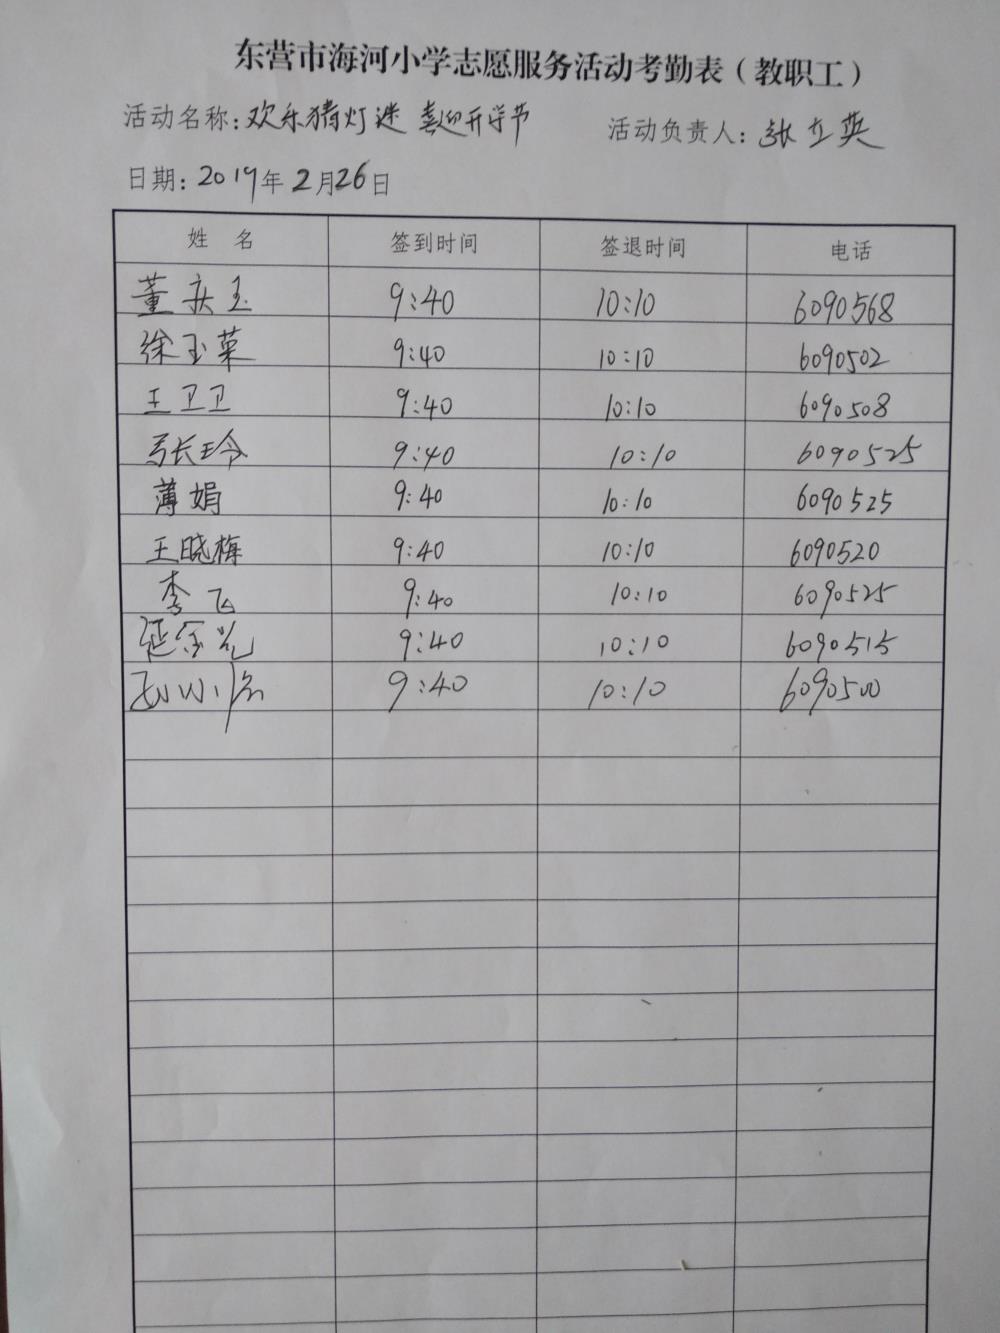 东营市海河小学志愿服务活动考勤表（教职工）
活动名称：欢乐猜灯谜 喜迎开学节 活动负责人：张立英
日期：2019年2月26日
姓 名 签到时间 签退时间 电话
董庆玉 9:40 10:10 6090568
徐玉菜 9:40 10:10 6090502
王卫卫 9:40 10:10 6090508
张玲 9:40 10:10 6090525
薄娟 9:40 10:10 6090525
王晓梅 9:40 10:10 6090520
李飞 9:40 10:10 6090525
延金光 9:40 10:10 6090515
9:40 10:10 6090500